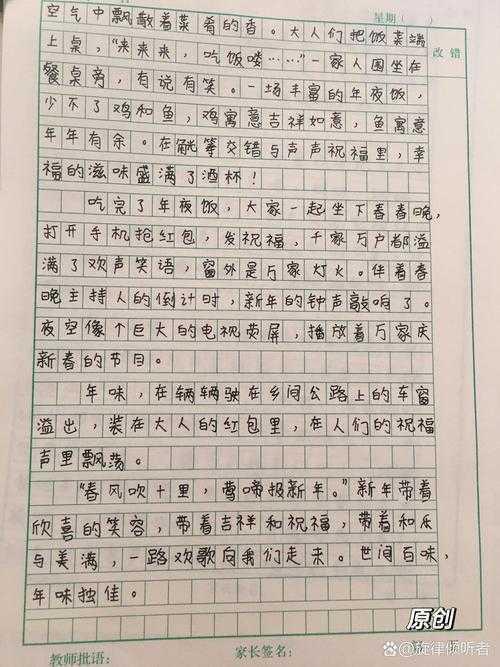 星期（ ）
改错
空气中飘散着菜肴的香。大人们把饭菜端
上桌，“来来来，吃饭喽……”一家人围坐在
餐桌旁，有说有笑。一场丰富的年夜饭，
少不了鸡和鱼，鸡寓意吉祥如意，鱼寓意
年年有余。在觥筹交错与声声祝福里，幸
福的滋味盛满了酒杯！
吃完了年夜饭，大家一起坐下看春晚，
打开手机抢红包，发祝福，千家万户都溢
满了欢声笑语，窗外是万家灯火。伴着春
晚主持人的倒计时，新年的钟声敲响了。
夜空像个巨大的电视荧屏，播放着万家庆
新春的节目。
年味，在辆辆驶在乡间公路上的车窗
溢出，装在大人的红包里，在人们的祝福
声里飘荡。
“春风吹十里，莺啼报新年。”新年带着
欣喜的笑容，带着吉祥和祝福，带着和乐
与美满，一路欢歌向我们走来。世间百味，
年味独佳。
原创
教师批语：
家长签名：
@旋律倾听者